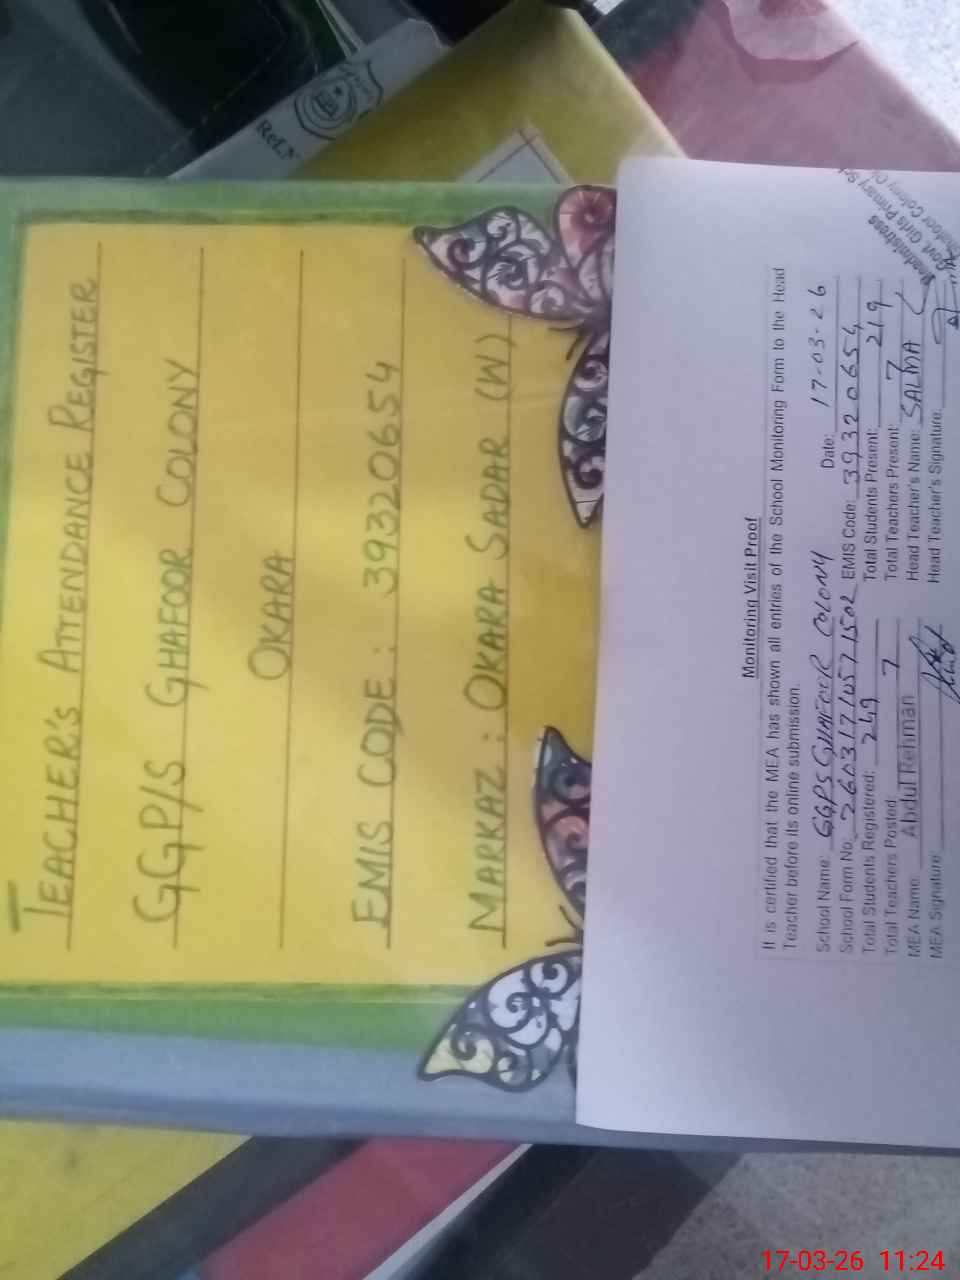 TEACHER'S ATTENDANCE REGISTER
GGP/S GHAFOOR COLONY
OKARA
EMIS CODE : 39320654
MARKAZ : OKARA SADAR (W)
Monitoring Visit Proof
It is certified that the MEA has shown all entries of the School Monitoring Form to the Head
Teacher before its online submission.
School Name: GGPS GHAFOOR COLONY Date: 17-03-26
School Form No: 26031710571502 EMIS Code: 39320654
Total Students Registered: 249 Total Students Present: 219
Total Teachers Posted: 7 Total Teachers Present: 7
MEA Name: Abdul Rehman Head Teacher's Name: SALMA
MEA Signature: Head Teacher's Signature:
Headmistress
Govt. Girls Primary
Colony
17-03-26 11:24